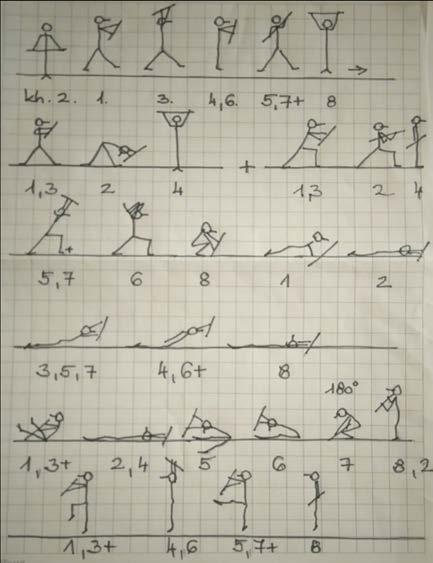 kh. 2. 1. 3. 4,6. 5,7+ 8
1,3 2 4 + 1,3 2 4
+
5,7 6 8 1 2
3,5,7 4,6+ 8
180°
1,3+ 2,4 5 6 7 8,2
1,3+ 4,6 5,7+ 8